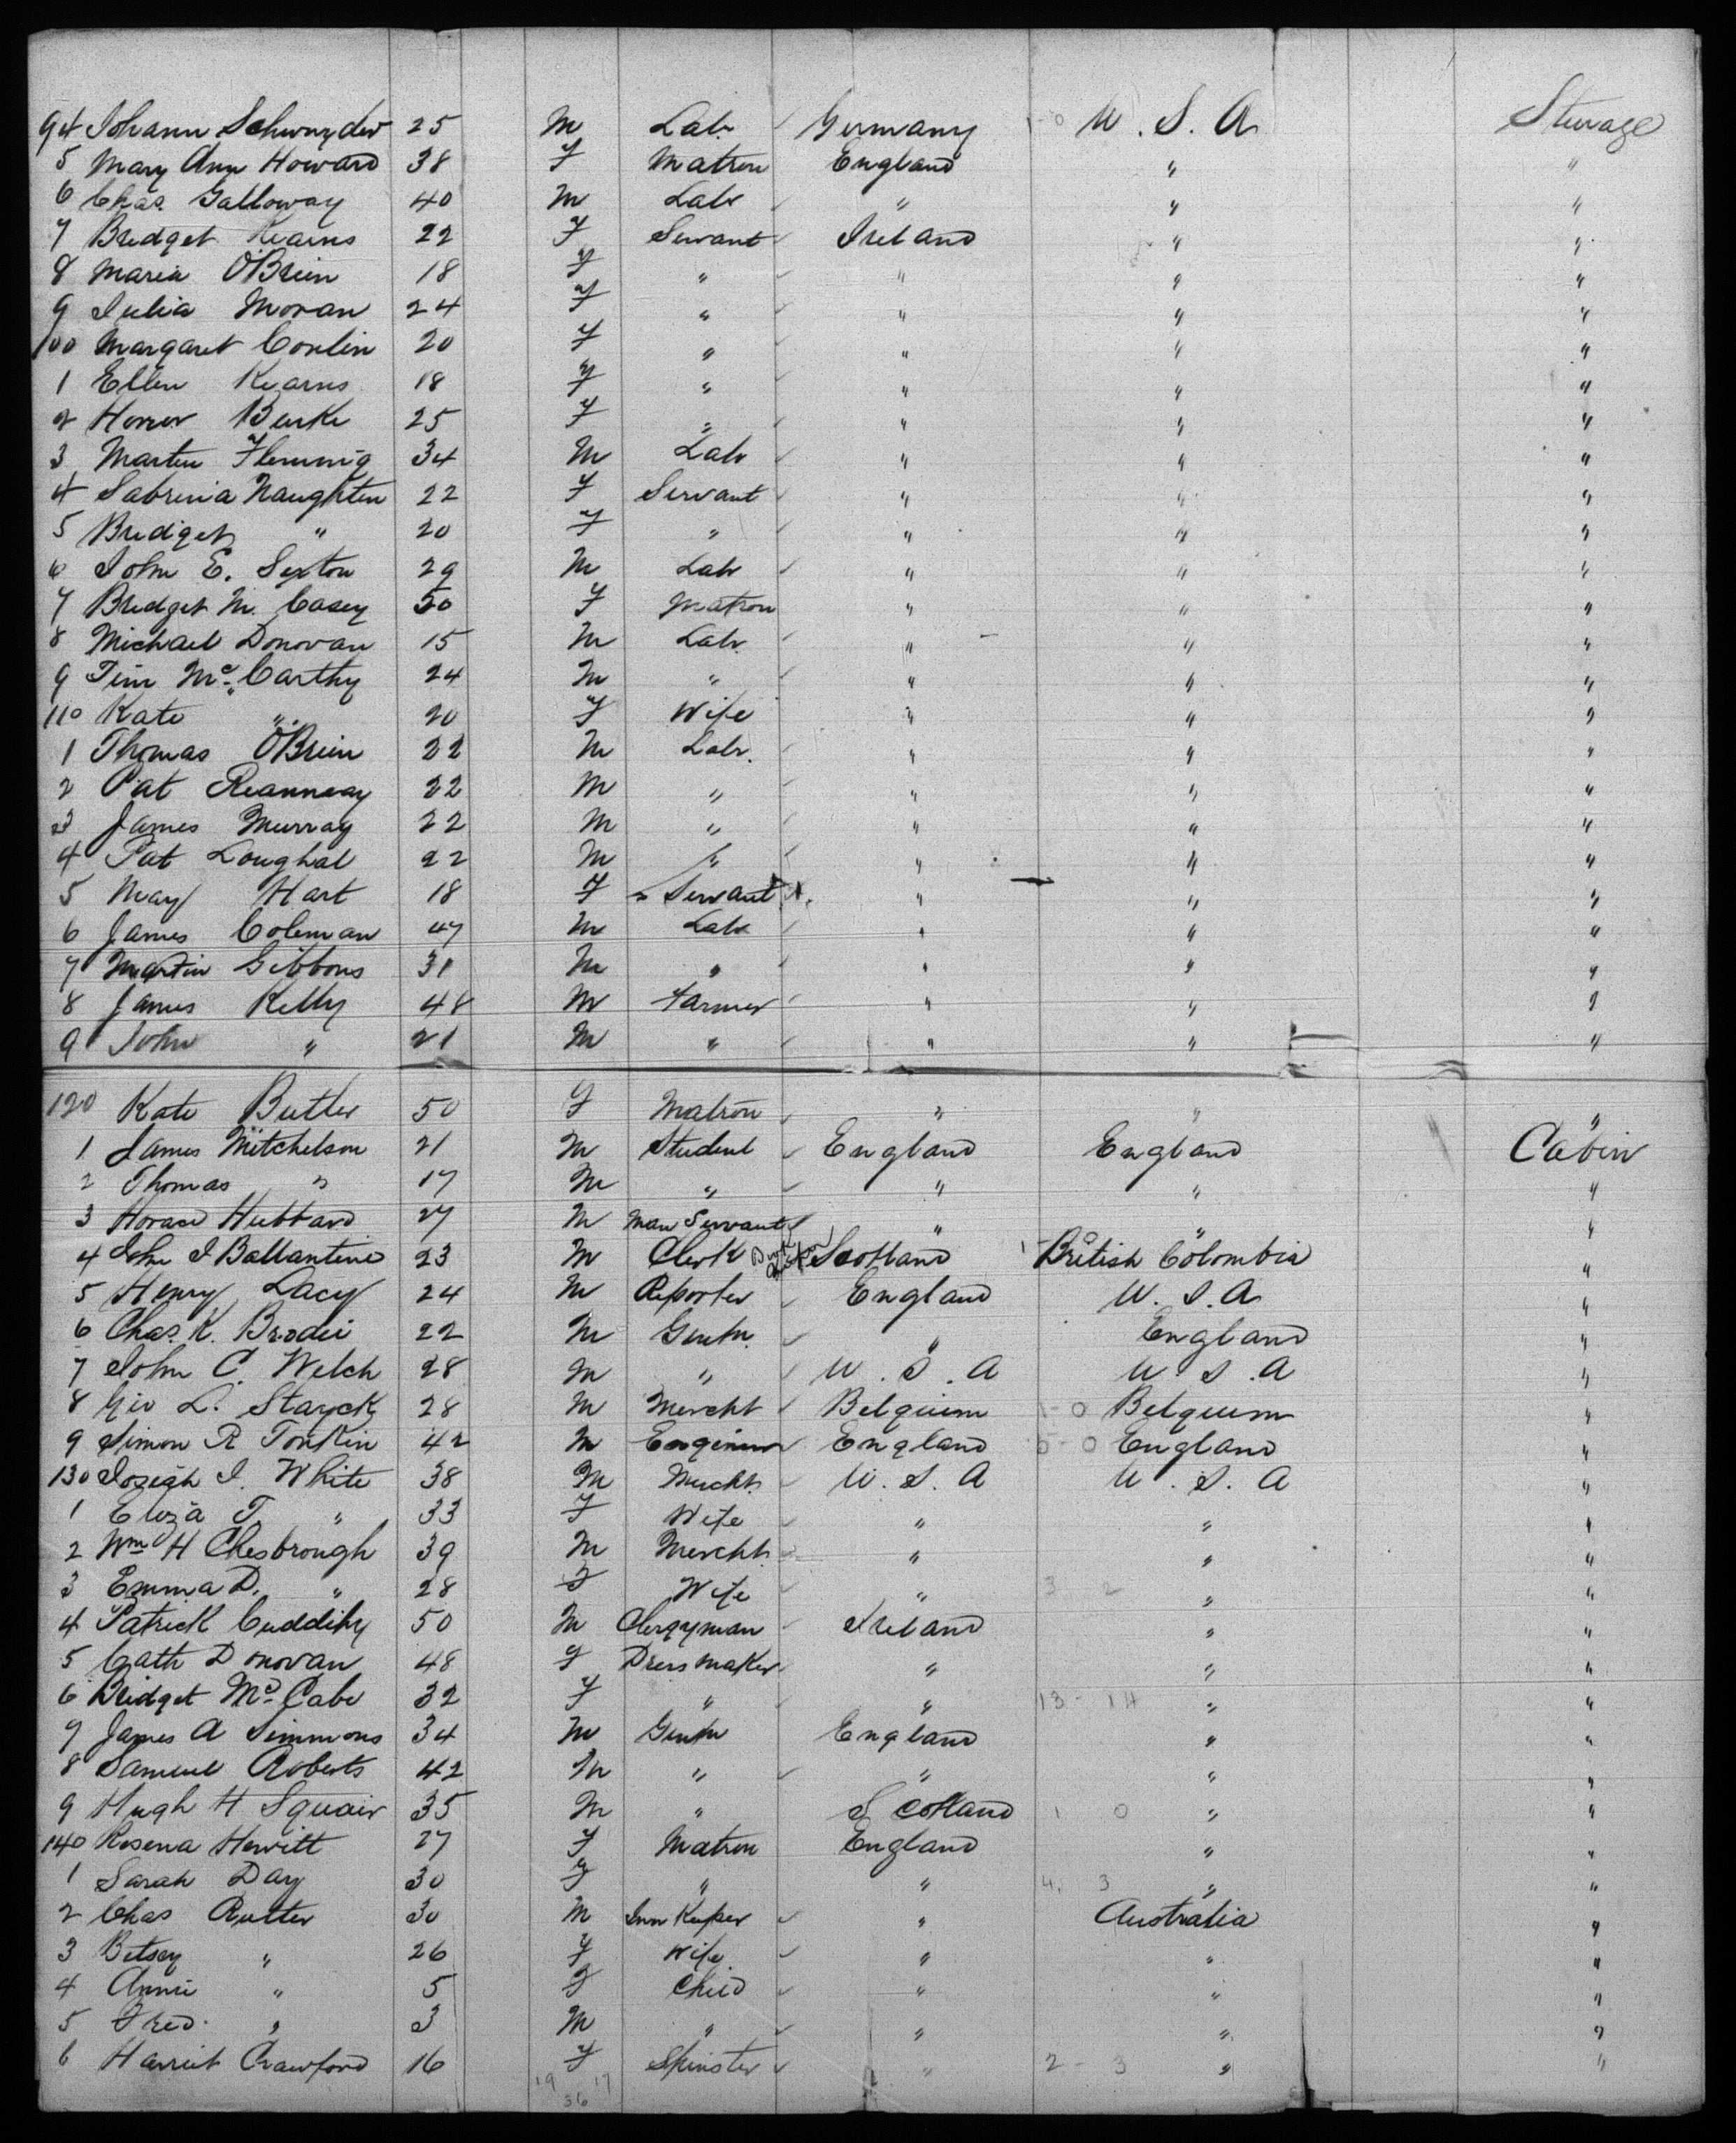 94 Johann Schwnyder 25 M Labr Germany U. S. A Sterage
5 Mary Ann Howard 38 F Matron England " "
6 Chas. Galloway 40 M Labr " " "
7 Bridget Kearns 22 F Servant Ireland " "
8 Maria O'Brien 18 F " " " "
9 Julia Moran 24 F " " " "
100 Margaret Conlin 20 F " " " "
1 Ellen Kearns 18 F " " " "
2 Honor Burke 25 F " " " "
3 Martin Flemmig 34 M Labr " " "
4 Sabrina Naughten 22 F Servant " " "
5 Bridget " 20 F " " " "
6 John E. Sexton 29 M Labr " " "
7 Bridget M. Casey 50 F Matron " " "
8 Michael Donovan 15 M Labr " " "
9 Tim Mc Carthy 24 M " " " "
110 Kate " 20 F Wife " " "
1 Thomas O'Brien 22 M Labr. " " "
2 Pat Reannway 22 M " " " "
3 James Murray 22 M " " " "
4 Pat Loughal 22 M " " " "
5 May Hart 18 F " Servant " " "
6 James Coleman 47 M Labr " " "
7 Martin Gibbons 31 M " " " "
8 James Kelly 48 M Farmer " " "
9 John " 21 M " " " "
120 Kate Butler 50 F Matron " " "
1 James Mitchelson 21 M Student England England Cabin
2 Thomas " 17 M " " " "
3 Horace Hubbard 27 M Man Servant " " "
4 John J Ballantine 23 M Clerk Scotland British Colombia "
5 Henry Lacy 24 M Reporter England U. S. A "
6 Chas. K. Brodie 22 M Gentn. " England "
7 John C. Welch 28 M " U. S. A U. S. A "
8 Geo L. Stayck 28 M Mercht Belguim 1 - 0 Belguim "
9 Simon R Tonkin 42 M Engineer England 5 - 0 England "
130 Josiah J. White 38 M Mercht. U. S. A U. S. A "
1 Eliza T. " 33 F Wife " " "
2 Wm H Chesbrough 39 M Mercht. " " "
3 Emma D. " 28 F Wife " 3 2 " "
4 Patrick Cuddihy 50 M Clergyman Ireland " "
5 Cath Donovan 48 F Dress maker " " "
6 Bridget Mc Cabe 32 F " " 13 - 14 " "
7 James A Simmons 34 M Gentn England " "
8 Samuel Roberts 42 M " " " "
9 Hugh H Squair 35 M " Scotland 1 0 " "
140 Rosena Hewitt 27 F Matron England " "
1 Sarah Day 30 F " " 4. 3 " "
2 Chas Rutter 30 M Inn Keeper " Australia "
3 Betsey " 26 F Wife " " "
4 Annie " 5 F Child " " "
5 Fred. " 3 M " " " "
6 Harriet Crawford 16 F Spinster " 2 - 3 " "
19 17
36